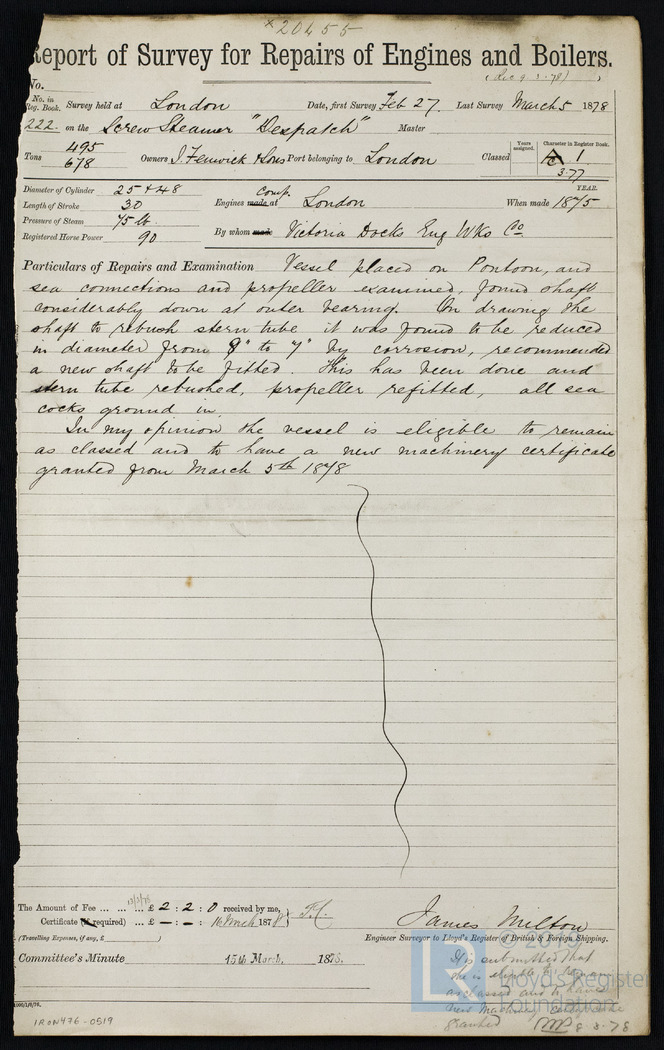 *20455
Report of Survey for Repairs of Engines and Boilers.
(Rec 9.3.78)
No.
No. in Reg. Book. Survey held at London Date, first Survey Feb 27. Last Survey March 5 1878
222. on the Screw Steamer "Despatch" Master
Tons 495 678 Owners J. Fenwick & Sons Port belonging to London Classed Years assigned. Character in Register Book. 1 3.77
Diameter of Cylinder 25 & 48
Length of Stroke 30
Pressure of Steam 75 lb
Registered Horse Power 90
Engines made at Comp. London When made YEAR. 1875
By whom made Victoria Docks Eng Wks Co
Particulars of Repairs and Examination Vessel placed on Pontoon, and
sea connections and propeller examined, found shaft
considerably down at outer bearing. On drawing the
shaft to rebush stern tube it was found to be reduced
in diameter from 9" to 7" by corrosion, recommended
a new shaft to be fitted. This has been done and
stern tube rebushed, propeller refitted, all sea
cocks ground in.
In my opinion the vessel is eligible to remain
as classed and to have a new machinery certificate
granted from March 5th 1878
13/3/78
The Amount of Fee ... ... ... £ 2 : 2 : 0 received by me,
Certificate (if required) ... £ – : – : 16 March 1878
(Travelling Expenses, if any, £ )
James Milton
Engineer Surveyor to Lloyd's Register of British & Foreign Shipping.
Committee's Minute 15th March, 1878.
It is submitted that
she is eligible to remain
as classed and to have a
new Machinery Certificate
granted 8.3.78
IRON476-0519
© 2019
LR
Lloyd's Register
Foundation